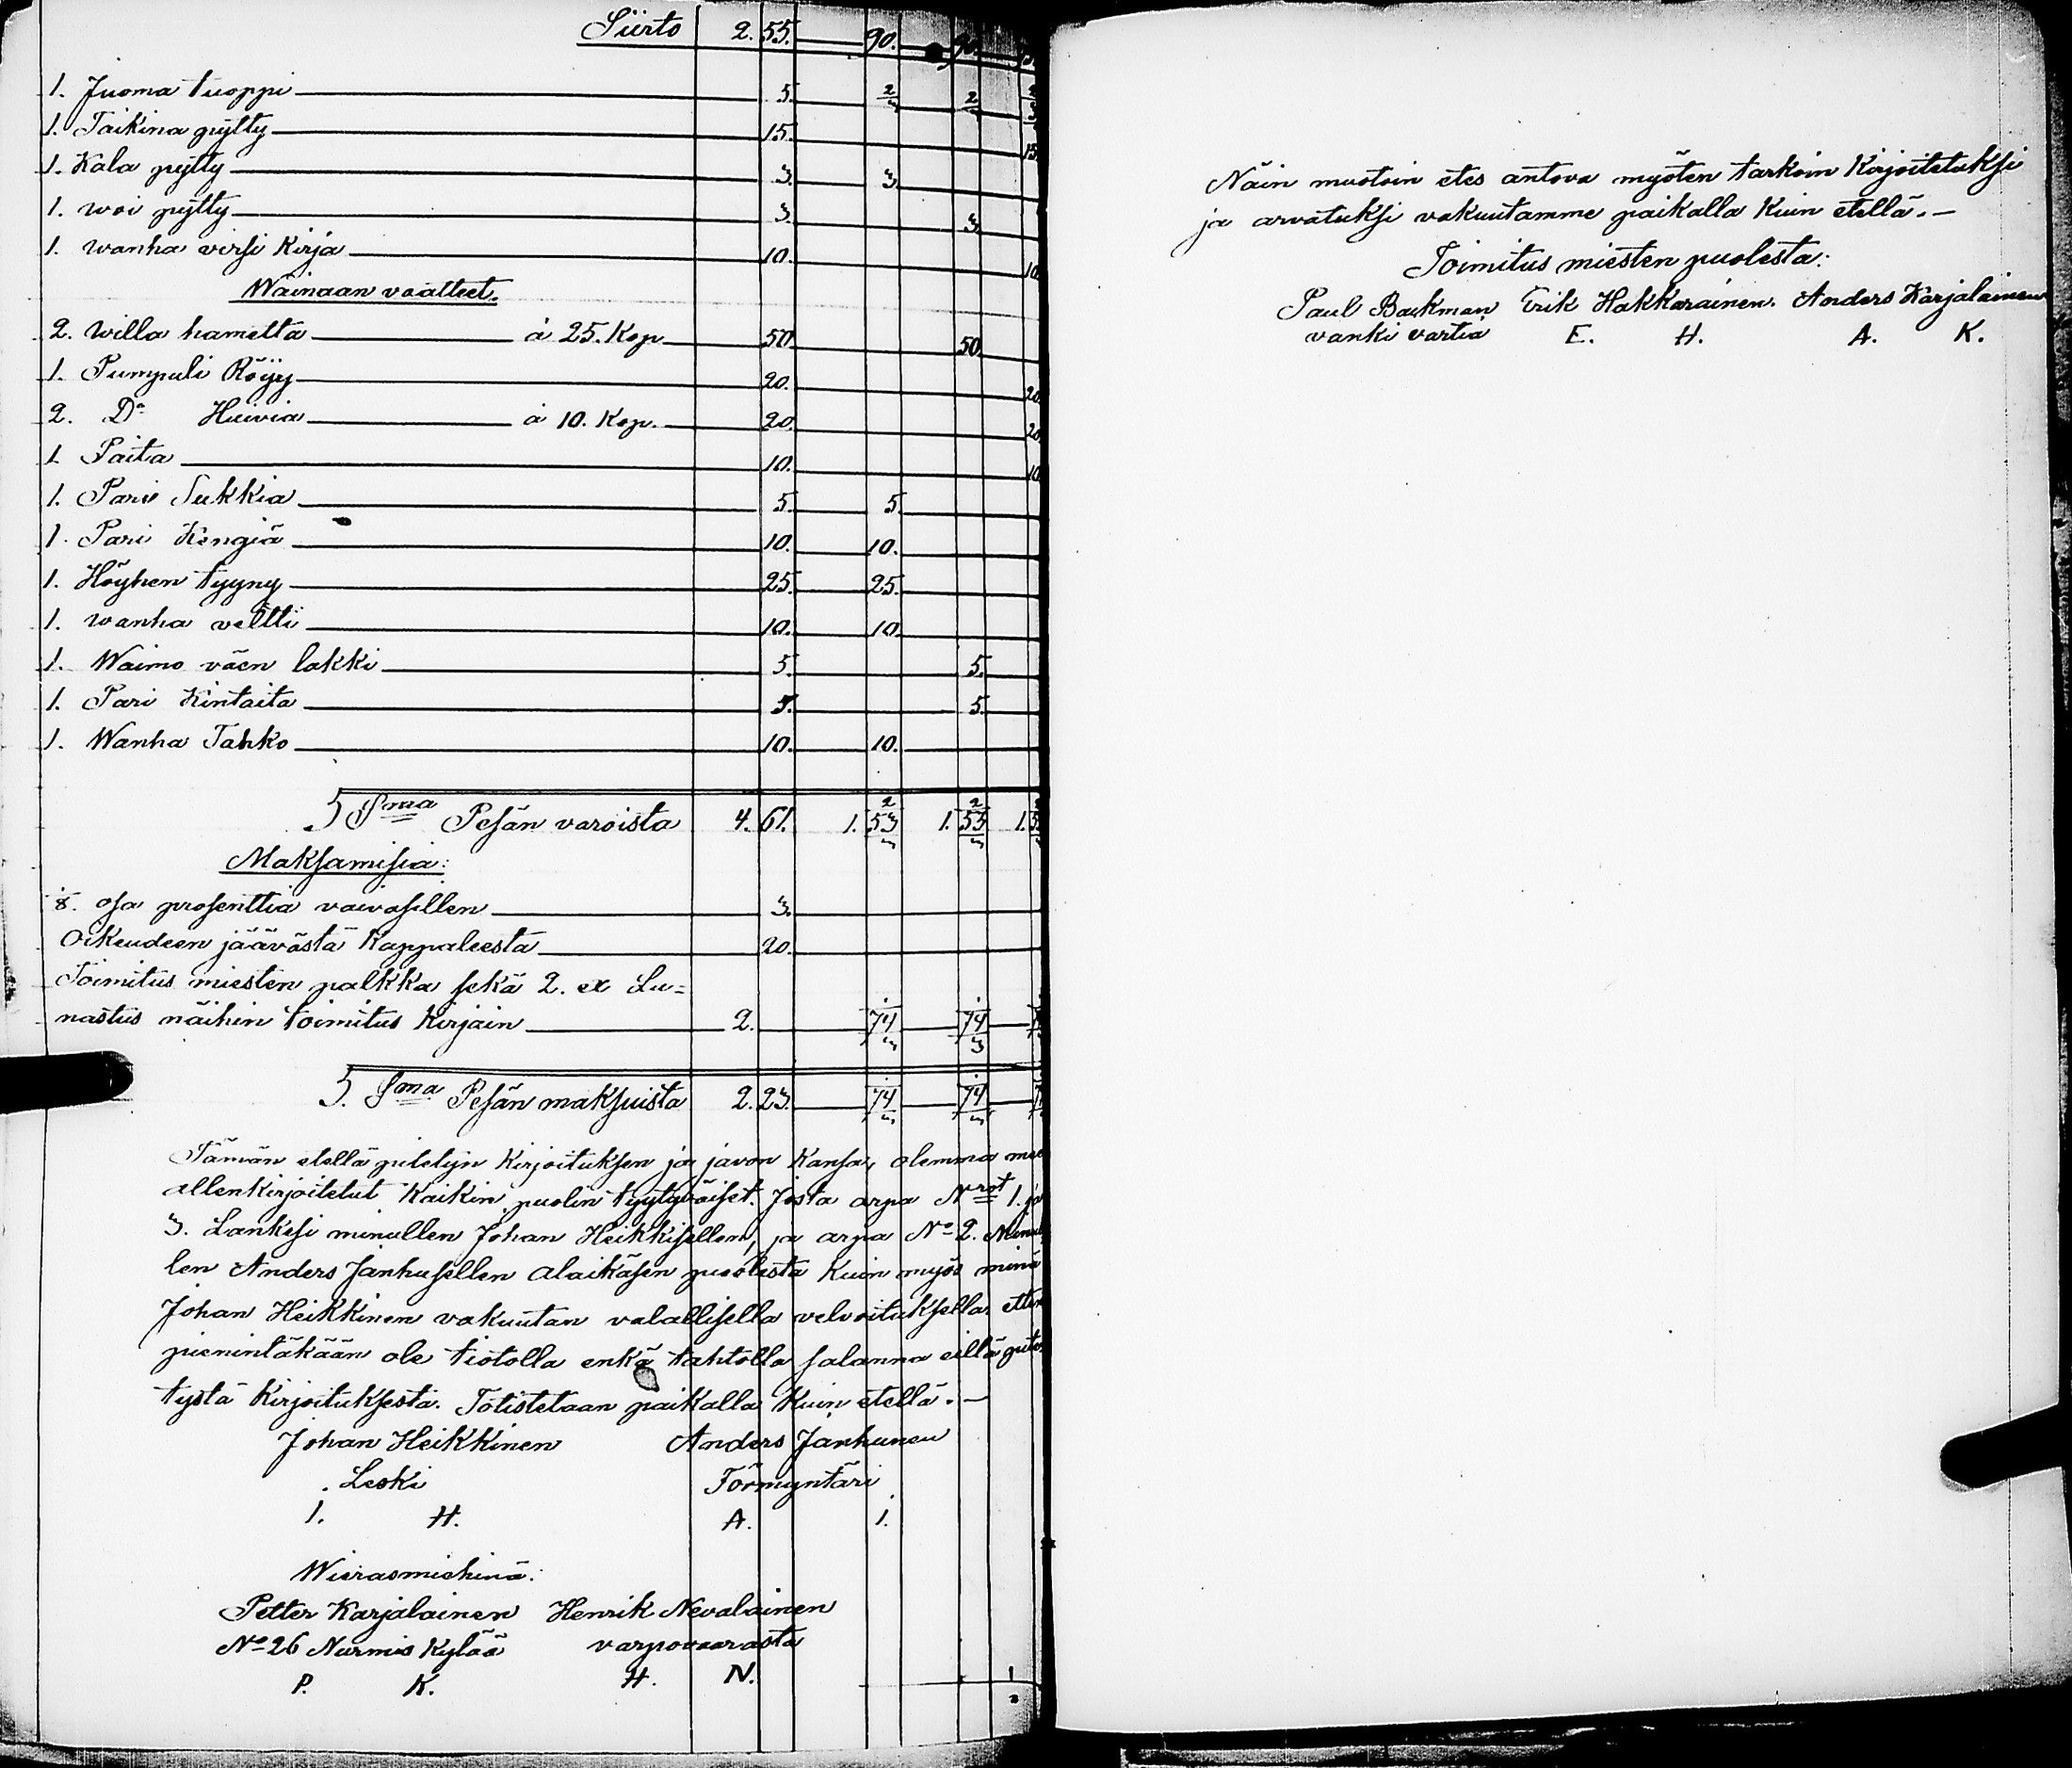 Siirto 2. 55. 90. 90.
1. Juoma tuoppi 5. 2/3 2/3
1. Taikina pytty 15. 15.
1. Kala pytty 3. 3.
1. woi pytty 3. 3.
1. wanha virsi Kirja 10. 10.
Wainaan vaatteet.
2. willa hametta á 25. Kop 50. 50.
1. Pumpuli Röijy 20. 20.
2. Do Huivia á 10. Kop. 20. 20.
1. Paita 10. 10.
1. Pari Sukkia 5. 5.
1. Pari Kengiä 10. 10.
1. Höyhen tyyny 25. 25.
1. wanha veltti 10. 10.
1. Waimo väen lakki 5. 5.
1. Pari Kintaita 5. 5.
1. Wanha Tahko 10. 10.
Soma Pesän varoista 4. 61. 1. 53 2/3 1. 53 2/3 1.
Maksamisia:
1/8. osa prosenttia vaivasillen 3.
Oikeudeen jäävästä Kappaleesta 20.
Toimitus miesten palkka sekä 2. ex Lu=
nastus näihin toimitus Kirjain 2. 74 1/3 74 1/3
Soma Pesän maksuista 2. 23. 74 1/3 74 1/3
Tämän etellä pitetyn Kirjoituksen ja javon Kansa, olemma me
allenkirjoitetut Kaikin puolin tyytyväiset. Josta arpa Nrot 1. ja
3. Lankesi minullen Johan Heikkisellen, ja arpa No 2. Minul
len Anders Janhusellen alaikäsen puolesta Kuin myös minä
Johan Heikkinen vakuutan valallisella velvoituksella etten
pienintäkään ole tiotolla enkä tahtolla salanna eillä pite
tystä Kirjoituksesta. Totistetaan paikalla Kuin etellä. —
Johan Heikkinen Anders Janhunen
Leski Förmyntäri
I. H. A. I.
Wierasmiehinä:
Petter Karjalainen Henrik Nevalainen
No 26 Nurmis Kylää varpovaarasta
P. K. H. N.
Näin muotoin etes antova myöten tarkoin Kirjoitetuksi
ja arvatuksi vakuutamme paikalla Kuin etellä. —
Toimitus miesten puolesta:
Paul Backman Erik Hakkarainen. Anders Karjalainen
vanki vartia E. H. A. K.